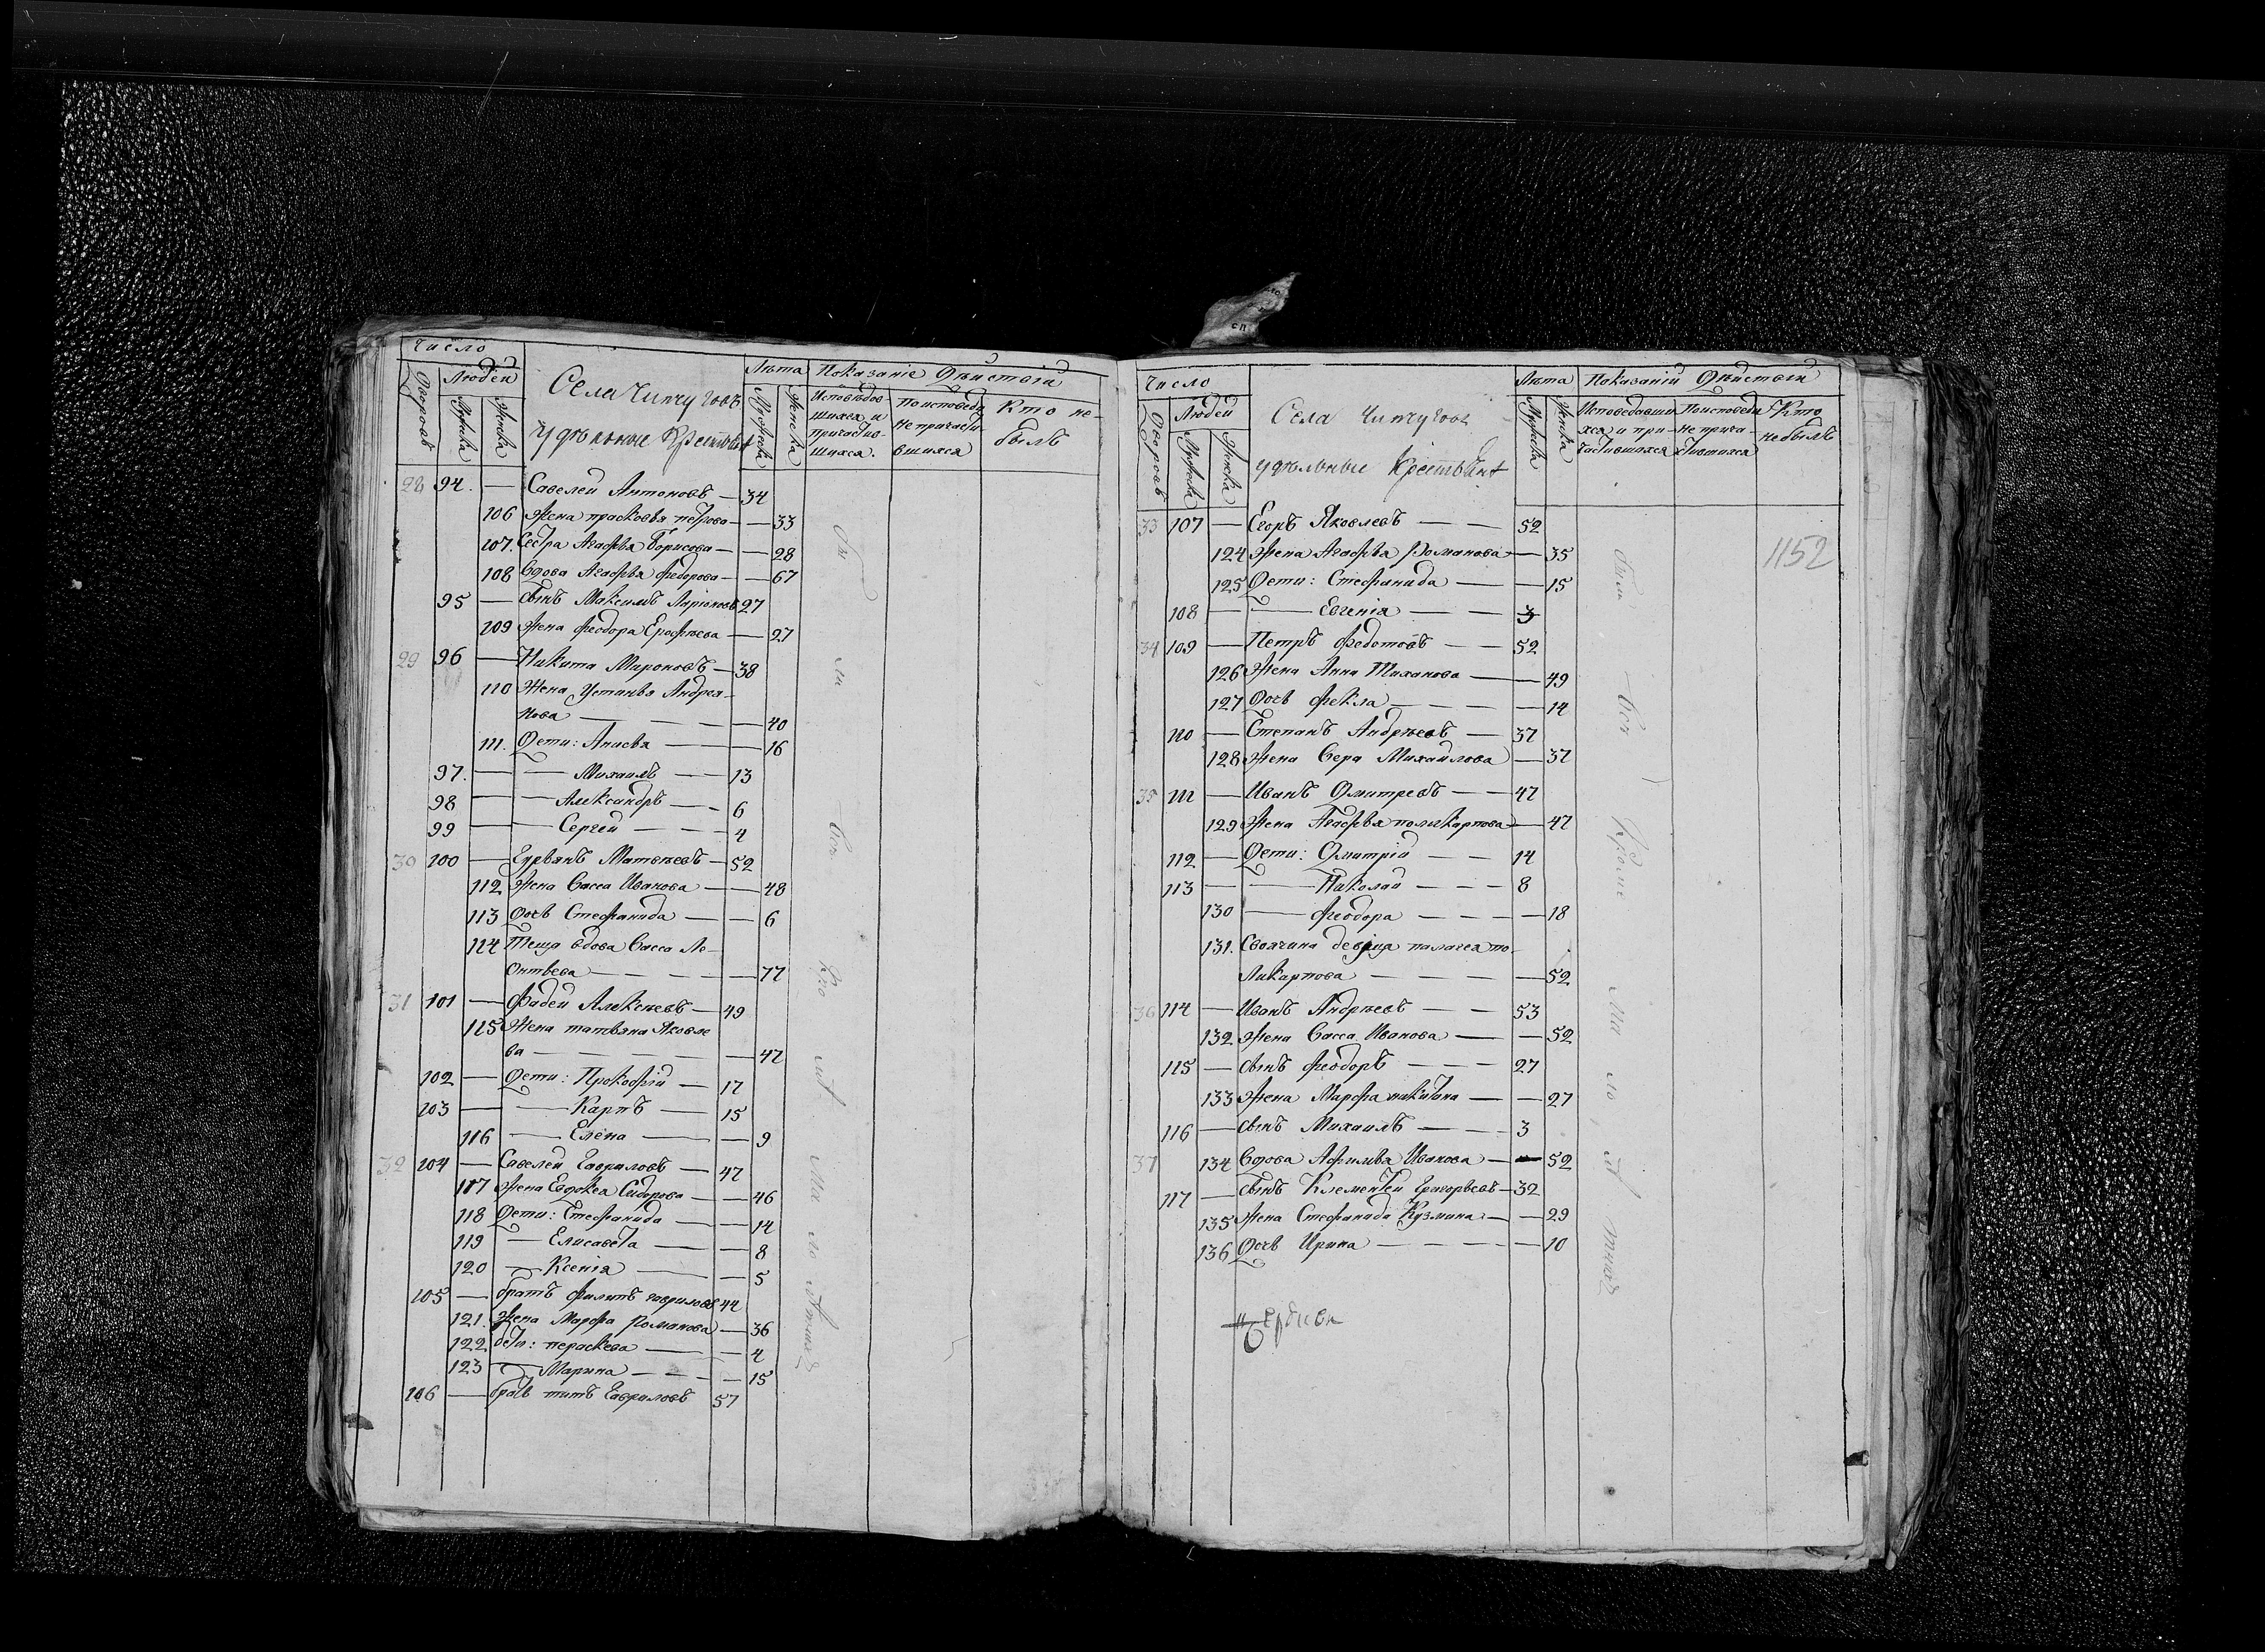 Число
Дворовъ
Людей
Мужска
Женска
Села Читугова
удѣльные Крестьяне
Лѣта
Мужска
Женска
Показаніе Дѣйствій
Исповѣдов-
шихся и
причастив-
шихся.
По исповеди
не причасти-
вшихся
Кто не-
былъ
28 94. — Савелей Антоновъ — 34
106 Жена прасковья петрова — 33
107. Сестра Агафья Борисова — 28
108 Вдова Агафья федорова — 67
95 — сынъ Максимъ Ларіоновъ 27
109 Жена феодора Ерофѣева — 27
29 96 — Никита Мироновъ — 38
110 Жена Устинья Андрея-
нова — 40
111. Дети: Анисья — 16
97. — Михаилъ — 13
98 — Александръ — 6
99 — Сергей — 4
30 100 — Матвѣевъ — 52
112 Жена Васса Иванова — 48
113 Дочь Стефанида — 6
114 Теща вдова Васса Ле-
онтьева — 77
31 101 — Фадей Алексѣевъ — 49
115 Жена татьяна Яковле
ва — 47
102 — Дети: Прокофій — 17
103 — Карпъ — 15
116 — Елена — 9
32 104 — Савелей Гавриловъ — 47
117 Жена Евдокея Сидорова — 46
118 Дети: Стефанида — 14
119 — Елисавета — 8
120 — Ксенія — 5
105 — братъ филипъ гавриловъ 44
121. Жена Марфа Романова — 36
122 дети: параскева — 4
123 — Марина — 15
106 — братъ титъ Гавриловъ 57
Число
Дворовъ
Людей
Мужска
Женска
Села Читугова
удѣльные Крестьяне
Лѣта
Мужска
Женска
Показаній Дѣйствій
Исповедавши
хся и при-
частившихся
По исповеди
не прича-
стившихся
Кто
не былъ
1152
33 107 — Егоръ Яковлевъ — 52
124 Жена Агафья Романова — 35
125 Дети: Стефанида — 15
108 — Евгенія — 3
34 109 — Петръ Федотовъ — 52
126 Жена Анна Тиханова — 49
127 Дочь фекла — 14
110 — Степанъ Андрѣевъ — 37
128 Жена Вера Михайлова — 37
35 111 — Иванъ Дмитревъ — 47
129 Жена Агафья поликарпова — 47
112 — Дети: Дмитрій — 14
113 — Николай — 8
130 — феодора — 18
131. Своячина девица палагея по-
ликарпова — 52
36 114 — Иванъ Андрѣевъ — 53
132 Жена Васса Иванова — 52
115 — сынъ феодоръ — 27
133 Жена Марфа никитина — 27
116 — сынъ Михаилъ — 3
37 134 Вдова Афимья Иванова — 52
117 — сынъ Клементей Григорьевъ — 32
135 Жена Стефанида Кузмина — 29
136 Дочь Ирина — 10